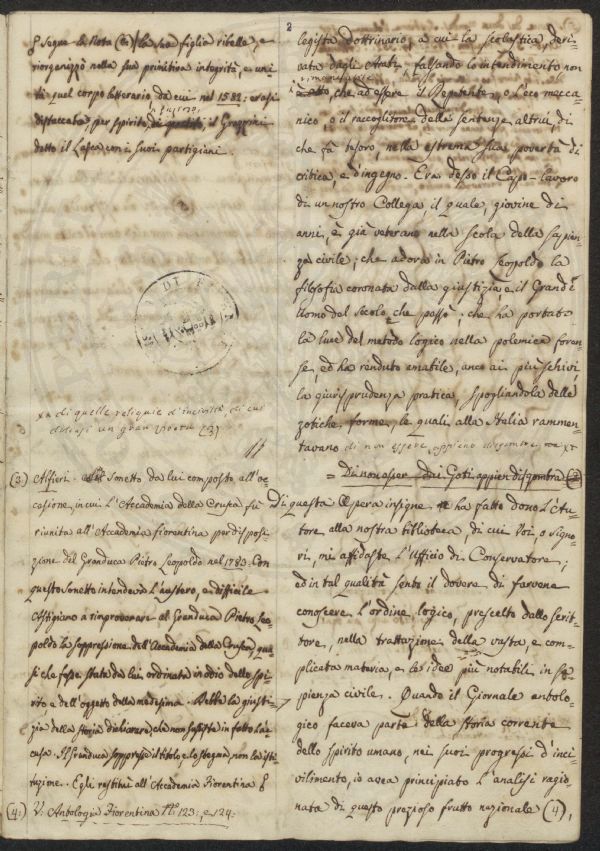 2
§ Segue la Nota (3) la sua figlia ribelle, e
riorganizzò nella sua primitiva integrità, e uni
tà quel corpo letterario da cui nel 1582: erasi
distaccato per spirito il Grazzini
detto il Lasca con i suoi partigiani.
di quelle reliquie d'inciviltà, di cui
un gran Poeta (3)
(3) Alfieri. Sonetto da lui composto all'oc=
casione, in cui L'Accademia della Crusca fu
riunita all'Accademia fiorentina per disposi=
zione del Granduca Pietro Leopoldo nel 1783. Con
questo Sonetto intendeva L'austero, e difficile
Astigiano a rimproverare al Granduca Pietro Leo=
poldo la soppressione dell'Accademia della Crusca, qua=
si che fosse stata da lui ordinata in odio dello spi=
rito e dell'oggetto della medesima. la giusti=
zia della Storia dichiarare, che non sussiste in fatto L'ac=
cusa. Il Granduca soppresse il titolo, e lo stegma, non la isti=
tuzione. Egli restituì all'Accademia Fiorentina §
(4) V. Antologia Fiorentina N.° 123: e 124:
legista dottrinario, a cui la scolastica, deri=
vata dagli Arabi falsando lo intendimento non
che ad essere il Repetente, o L'eco mecca=
nico, o il raccoglitore delle sentenze altrui, di
che fà tesoro, nella estrema sua povertà di
critica, e d'ingegno. Era desso il Capo-lavoro
di un nostro Collega, il quale, giovine di
anni, è già veterano nella scola della sapien=
za civile; che adora in Pietro Leopoldo la
filosofia coronata dalla giustizia, e il Grand'
Uomo del Secolo, che passò; che ha portato
la luce del metodo logico nella polemica foren=
se, ed ha renduto amabile, anco ai più schivi,
la giurisprudenza pratica, spogliandola delle
zotiche forme, le quali alla Italia rammen=
tavano di non essere appieno disgombra
= Di non esser dei Goti appien disgombra (3)
Di questa Opera insigne ha fatto dono L'Au=
tore alla nostra biblioteca, di cui Voi, o Signo=
ri, mi affidaste L'Ufficio di Conservatore;
ed in tal qualità sento il dovere di farvene
conoscere L'ordine logico, prescelto dallo scrit=
tore, nella trattazione della vasta, e com=
plicata materia, e le idee più notabili in sa=
pienza civile. Quando il Giornale antolo=
gico faceva parte della Storia corrente
dello spirito umano, nei suoi progressi d'inci=
vilimento, io avea principiato L'analisi ragio=
nata di questo prezioso frutto nazionale (4),